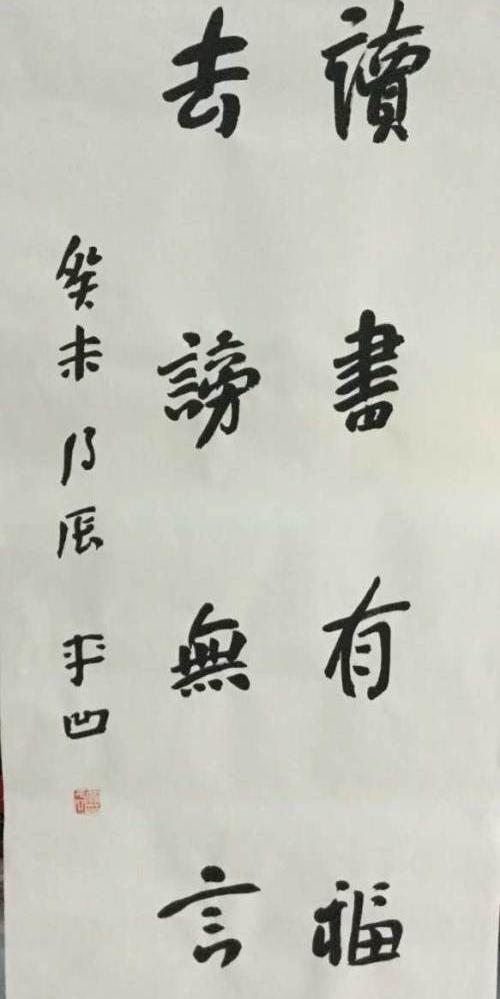 讀書有福
去謗無言
癸未 辰 平凹